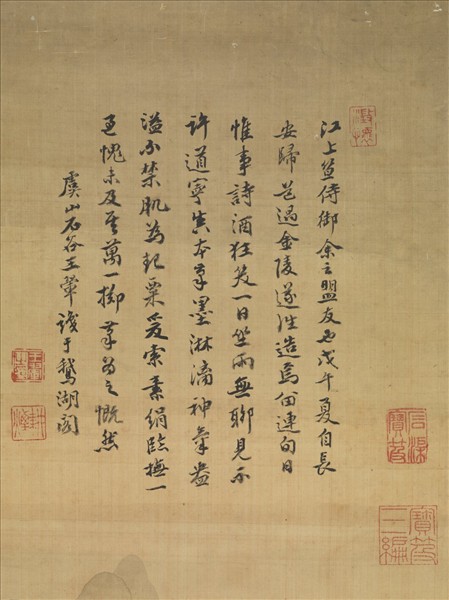 江上笪侍御余之盟友也戊午夏自長
安歸芒過金陵遂往造焉留連旬日
惟事詩酒狂笑一日坐雨無聊見示
許道寧真本筆墨淋漓神氣盎
溢不禁肌為起粟爰索素絹臨撫一
過愧未及其萬一擲筆為之慨然
虞山石谷王翬識于鵝湖閣
石渠
寶笈
寶笈
三編